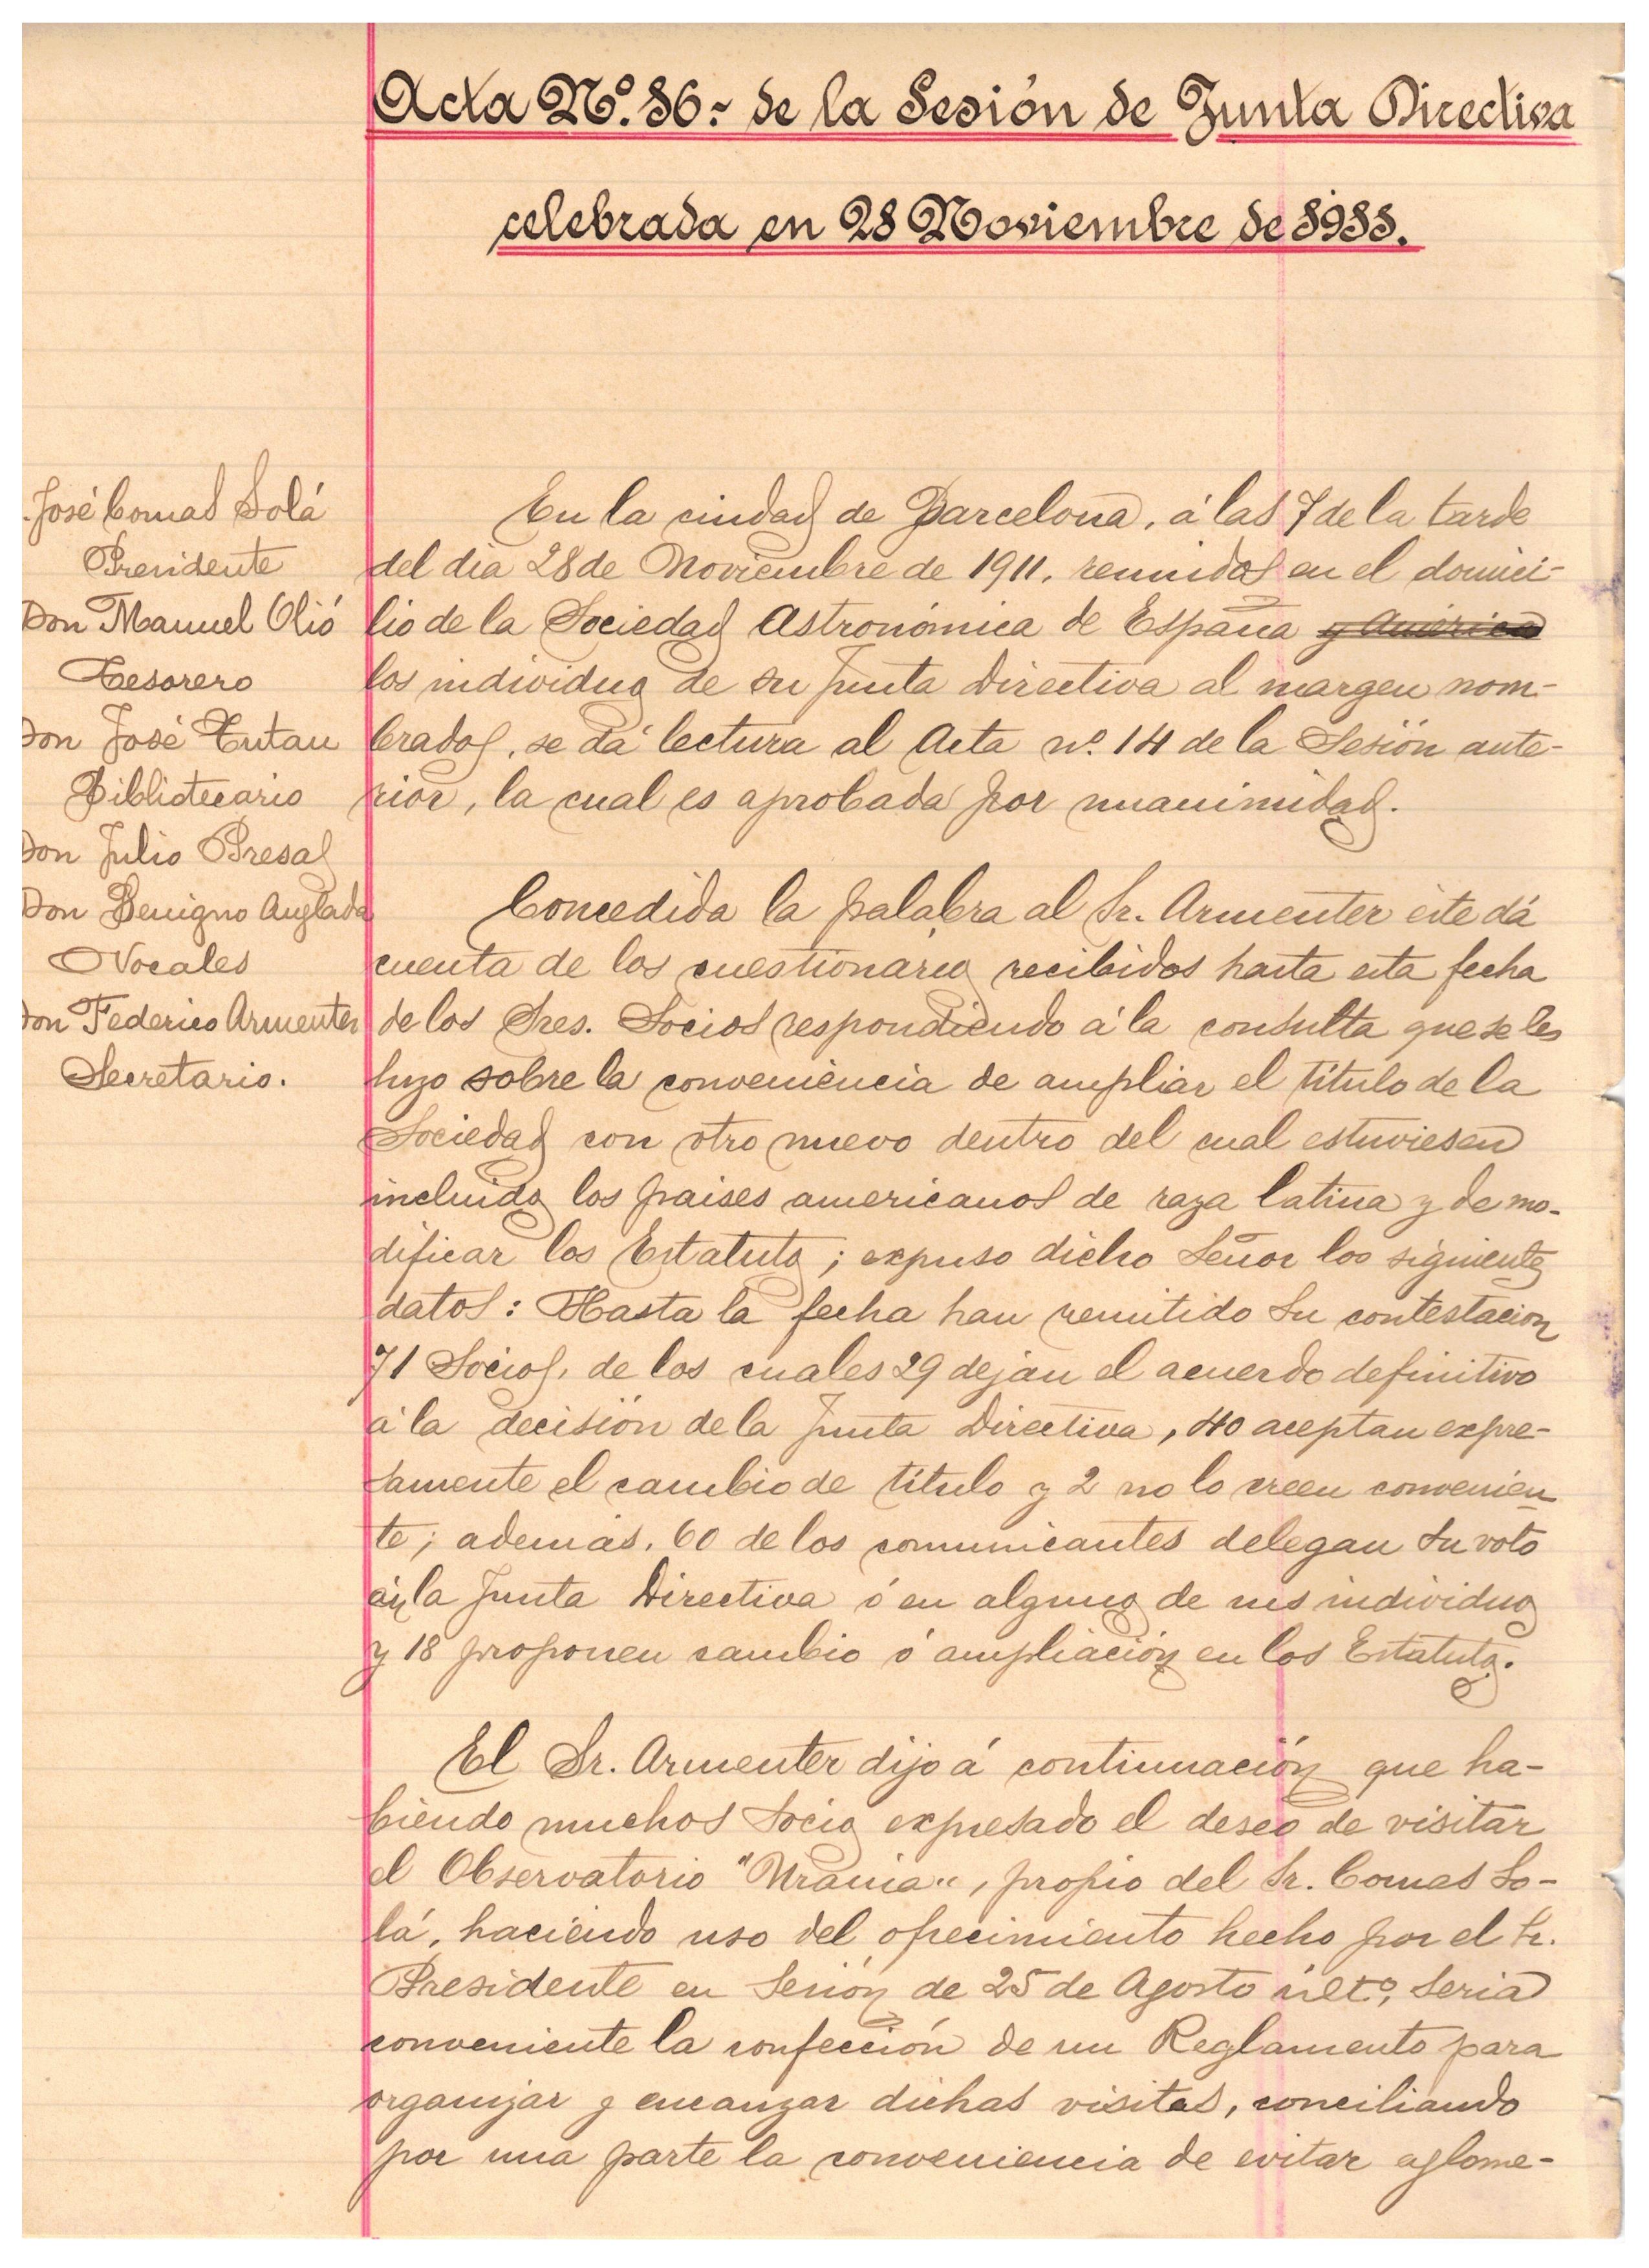 Acta Nº. 16.- de la Sesión de Junta Directiva
celebrada en 28 Noviembre de 1911.
José Comas Solá
Presidente
Don Manuel Olió
Tesorero
Don José Tutau
Bibliotecario
Don Julio Presas
Don Benigno Anglada
Vocales
Don Federico Armenter
Secretario.
En la ciudad de Barcelona, á las 7 de la tarde
del dia 28 de Noviembre de 1911, reunidos en el domici-
lio de la Sociedad Astronómica de España y América
los individuos de su Junta Directiva al margen nom-
brados, se dá lectura al Acta nº. 14 de la Sesión ante-
rior, la cual es aprobada por unanimidad.
Concedida la palabra al Sr. Armenter éste dá
cuenta de los cuestionarios recibidos hasta esta fecha
de los Sres. Socios respondiendo á la consulta que se les
hizo sobre la conveniencia de ampliar el título de la
Sociedad con otro nuevo dentro del cual estuviesen
incluidos los paises americanos de raza latina y de mo-
dificar los Estatutos; expuso dicho Señor los siguientes
datos: Hasta la fecha han remitido su contestación
71 Socios, de los cuales 29 dejan el acuerdo definitivo
á la decisión de la Junta Directiva, 40 aceptan expre-
samente el cambio de título y 2 no lo creen convenien-
te; además, 60 de los comunicantes delegan su voto
á la Junta Directiva ó en alguno de sus individuos
y 18 proponen cambio ó ampliación en los Estatutos.
El Sr. Armenter dijo á continuación que ha-
biendo muchos Socios expresado el deseo de visitar
el Observatorio "Urania", propio del Sr. Comas So-
lá, haciendo uso del ofrecimiento hecho por el Sr.
Presidente en Sesión de 25 de Agosto últº., seria
conveniente la confección de un Reglamento para
organizar y encauzar dichas visitas, conciliando
por una parte la conveniencia de evitar aglome-